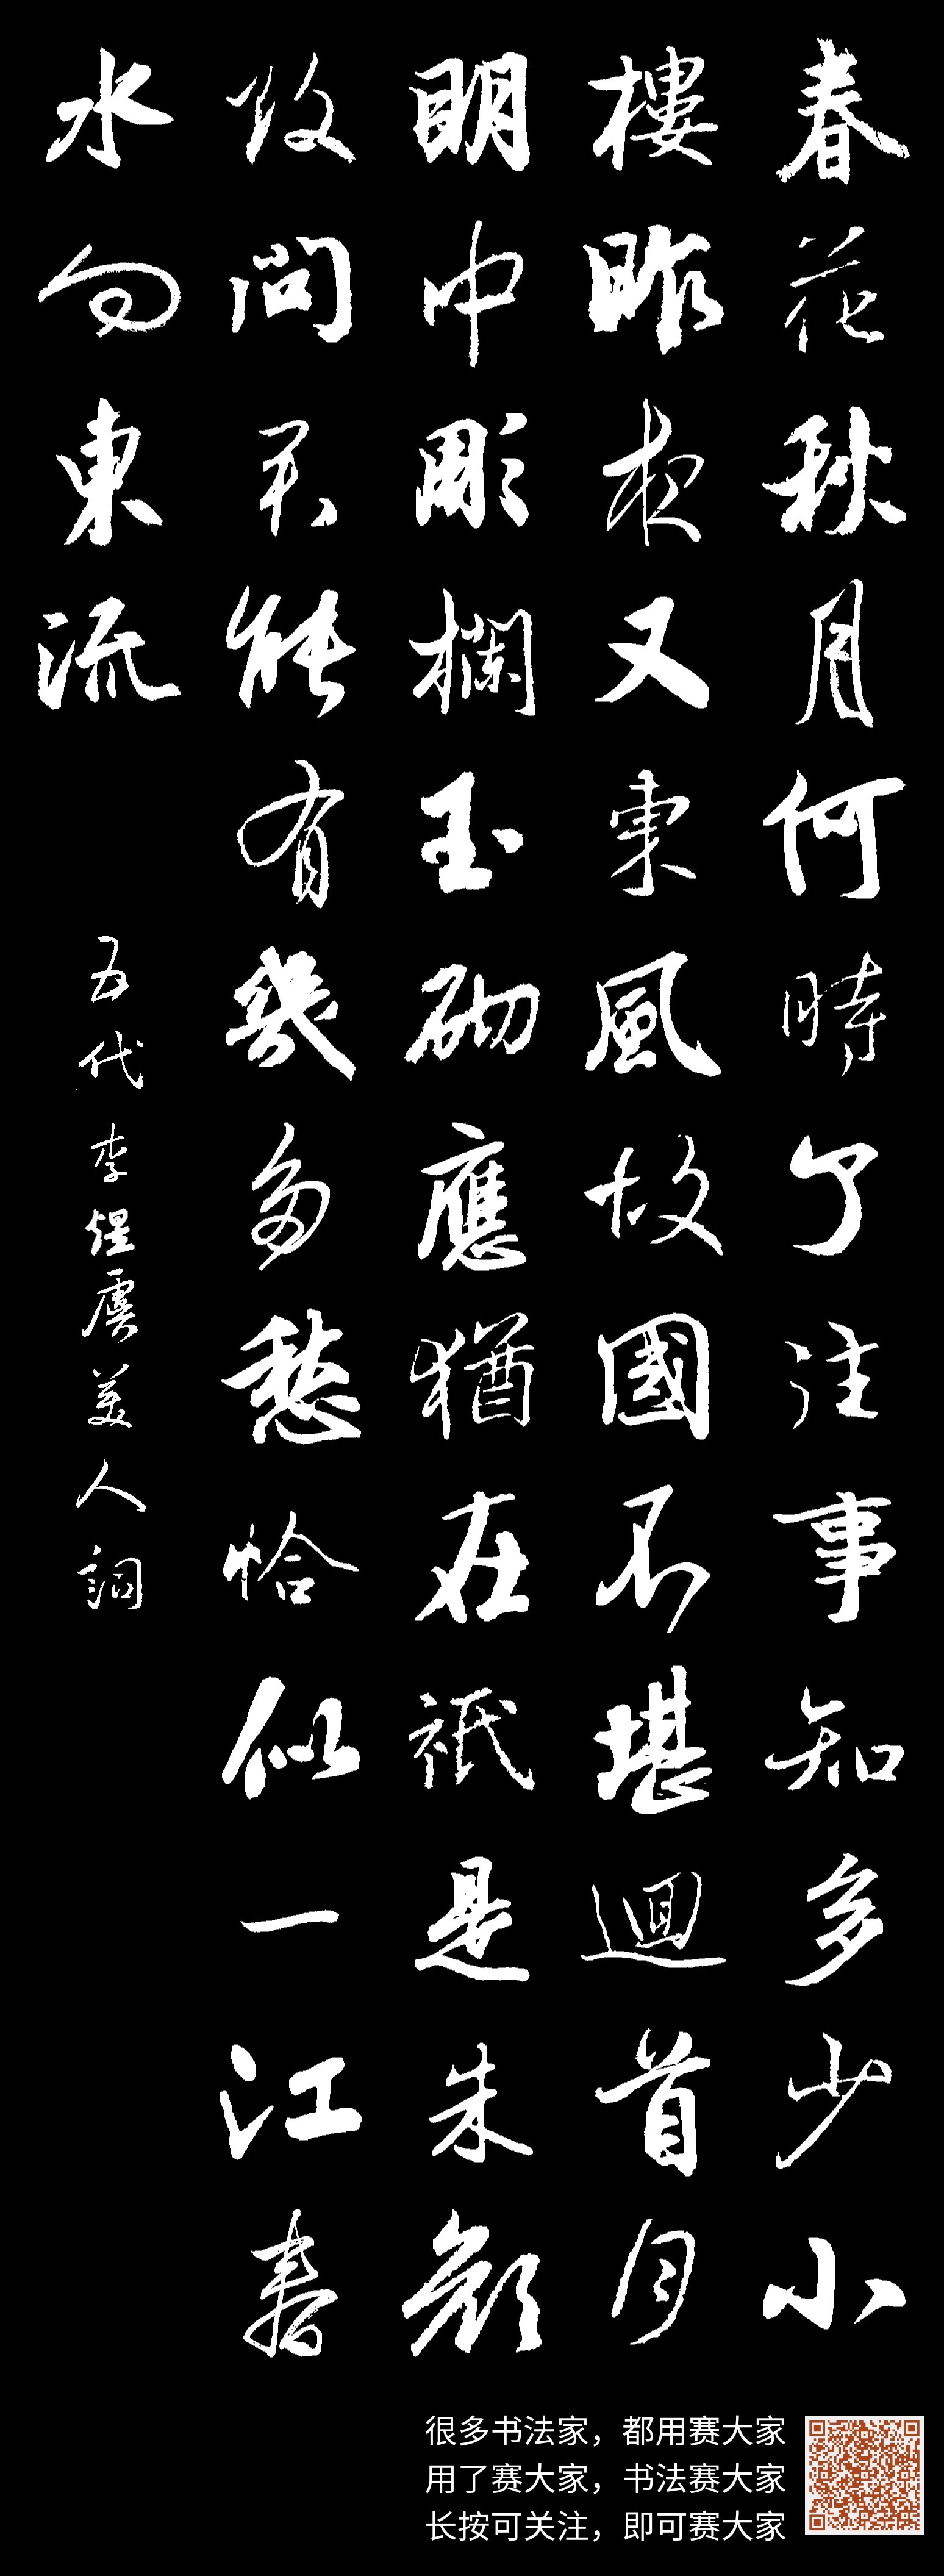 春花秋月何時了往事知多少小
樓昨夜又東風故國不堪迴首月
明中彫欄玉砌應猶在祇是朱顏
改問君能有幾多愁恰似一江春
水向東流
五代李煜虞美人詞
很多书法家，都用赛大家
用了赛大家，书法赛大家
长按可关注，即可赛大家